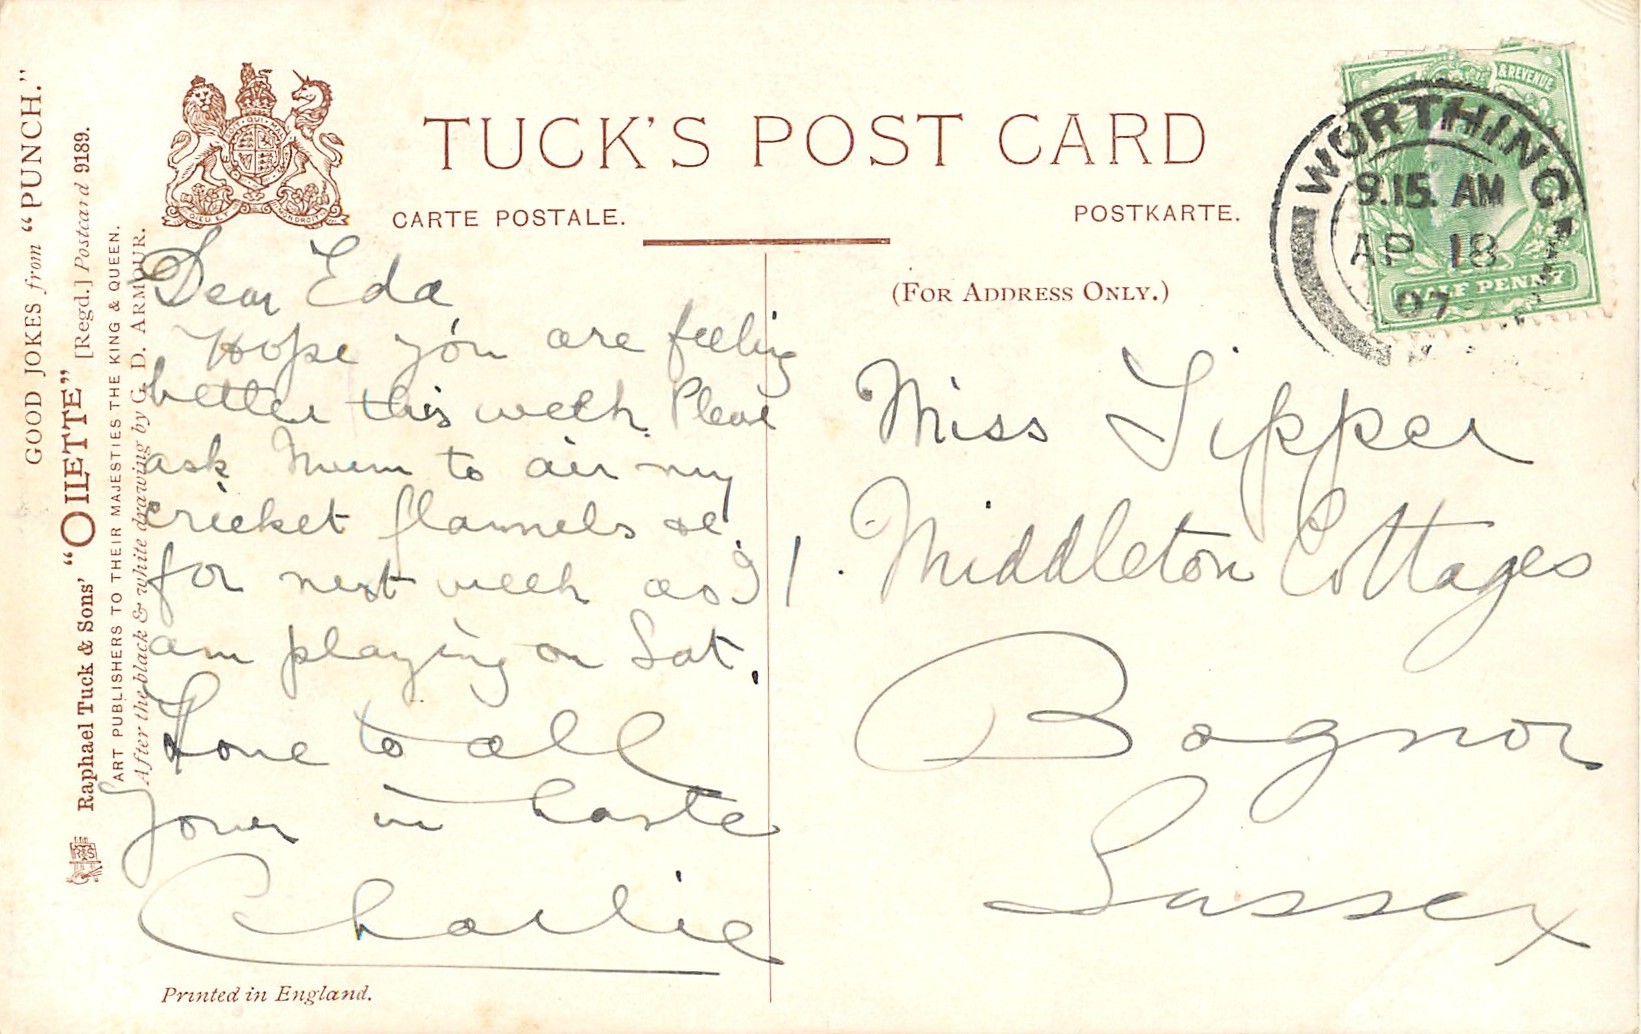 GOOD JOKES from "PUNCH."
Raphael Tuck & Sons' "OILETTE" [Regd.] Postcard 9189.
ART PUBLISHERS TO THEIR MAJESTIES THE KING & QUEEN.
After the black & white drawing by G. D. ARMOUR.
TUCK'S POST CARD
CARTE POSTALE.
POSTKARTE.
(FOR ADDRESS ONLY.)
& REVENUE
HALF PENNY
WORTHING
9.15. AM
AP 18
07
Dear Eda
Hope you are feeling
better this week. Please
ask Mum to air my
cricket flannels &c.
for next week as I
am playing on Sat.
Love to all
Yours in haste
Charlie
Miss Tipper
1. Middleton Cottages
Bognor
Sussex
Printed in England.